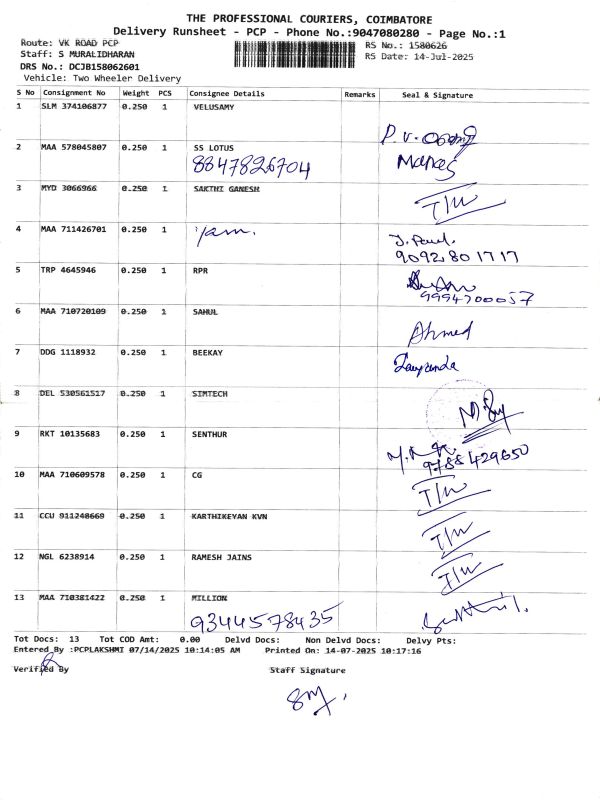 THE PROFESSIONAL COURIERS, COIMBATORE
Delivery Runsheet - PCP - Phone No.:9047080280 - Page No.:1
Route: VK ROAD PCP RS No.: 1580626
Staff: S MURALIDHARAN RS Date: 14-Jul-2025
DRS No.: DCJB158062601
Vehicle: Two Wheeler Delivery
S No Consignment No Weight PCS Consignee Details Remarks Seal & Signature
1 SLM 374106877 0.250 1 VELUSAMY
P. V.
2 MAA 578045807 0.250 1 SS LOTUS
8847826704 Manas
3 MYD 3066966 0.250 1 SAKTHI GANESH
T/W
4 MAA 711426701 0.250 1
J. Paul.
9092801717
5 TRP 4645946 0.250 1 RPR
9994700057
6 MAA 710720109 0.250 1 SAHUL
Ahmed
7 DDG 1118932 0.250 1 BEEKAY
8 DEL 530561517 0.250 1 SIMTECH
9 RKT 10135683 0.250 1 SENTHUR
9788429650
10 MAA 710609578 0.250 1 CG
T/W
11 CCU 911248669 0.250 1 KARTHIKEYAN KVN
T/W
12 NGL 6238914 0.250 1 RAMESH JAINS
T/W
13 MAA 710381422 0.250 1 MILLION
9344578435
Tot Docs: 13 Tot COD Amt: 0.00 Delvd Docs: Non Delvd Docs: Delvy Pts:
Entered By :PCPLAKSHMI 07/14/2025 10:14:05 AM Printed On: 14-07-2025 10:17:16
Verified By Staff Signature